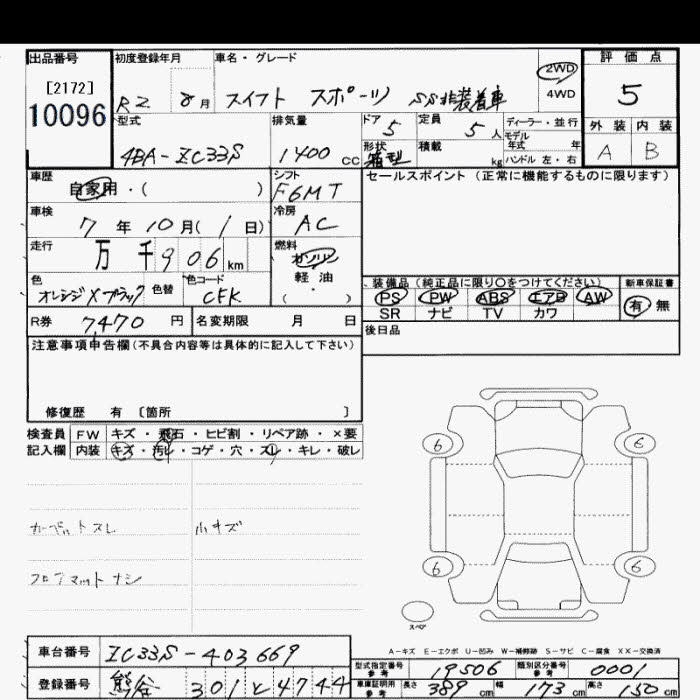 出品番号 初度登録年月 車名・グレード 2WD 評価点
[2172] 4WD 5
10096 R2 8月 スイフト スポーツ SS非装着車
型式 排気量 ドア 定員 ディーラー・並行 外装 内装
4BA-ZC33S 1400 cc 5 5人 モデル年式 年 A B
形状 箱型 積載 kg ハンドル 左・右
車歴 シフト セールスポイント (正常に機能するものに限ります)
自家用・( ) F6MT
車検 冷房
7年10月(1日) AC
走行 燃料
万 千906km ガソリン
軽油
( )
色 色替 色コード 装備品 (純正品に限り○をつけてください) 新車保証書
オレンジ×ブラック CFK PS PW ABS エアB AW 有 無
SR ナビ TV カワ
R券 7470円 名変期限 月 日 後日品
注意事項申告欄(不具合内容等は具体的に記入して下さい)
修復歴 有 〔箇所 〕
検査員 FW キズ・飛石・ヒビ割・リペア跡・×要
記入欄 内装 キズ・汚レ・コゲ・穴・スレ・キレ・破レ
カーペットスレ 小キズ
フロアマットナシ
6 6
6 6
スペア
A-キズ E-エクボ U-凹み W-補修跡 S-サビ C-腐食 XX-交換済
車台番号 ZC33S-403669
型式指定番号 参考 19506 類別区分番号 参考 0001
登録番号 熊谷 301 と 4744
車庫証明用 参考 長さ 389cm 幅 173cm 高さ 150cm